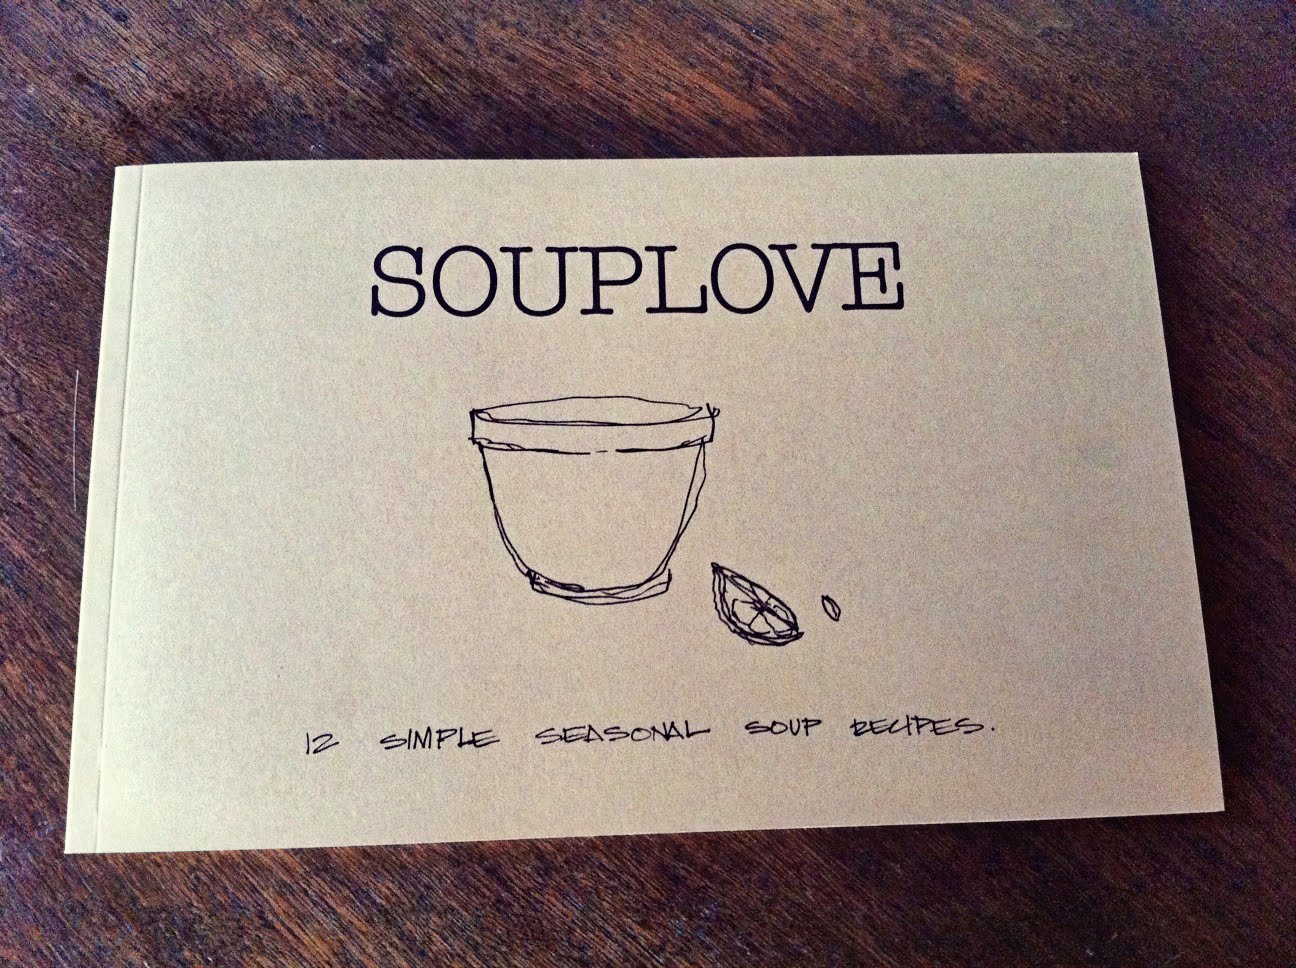 SOUPLOVE
12 SIMPLE SEASONAL SOUP RECIPES.